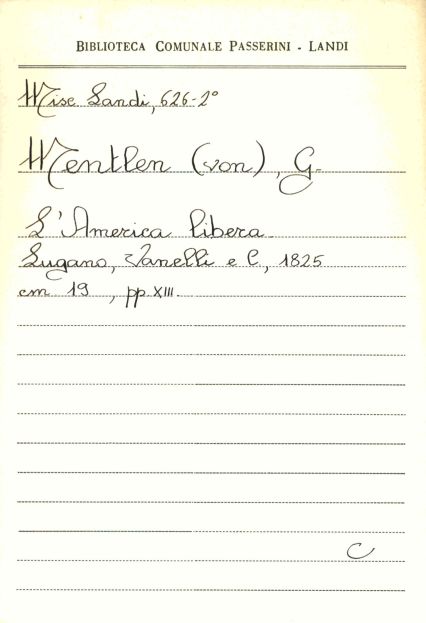 BIBLIOTECA COMUNALE PASSERINI - LANDI
Misc Landi, 626-2°
Mentlen (von), G.
L'America libera
Lugano, Vanelli e C, 1825
cm 19 , pp. XIII
C